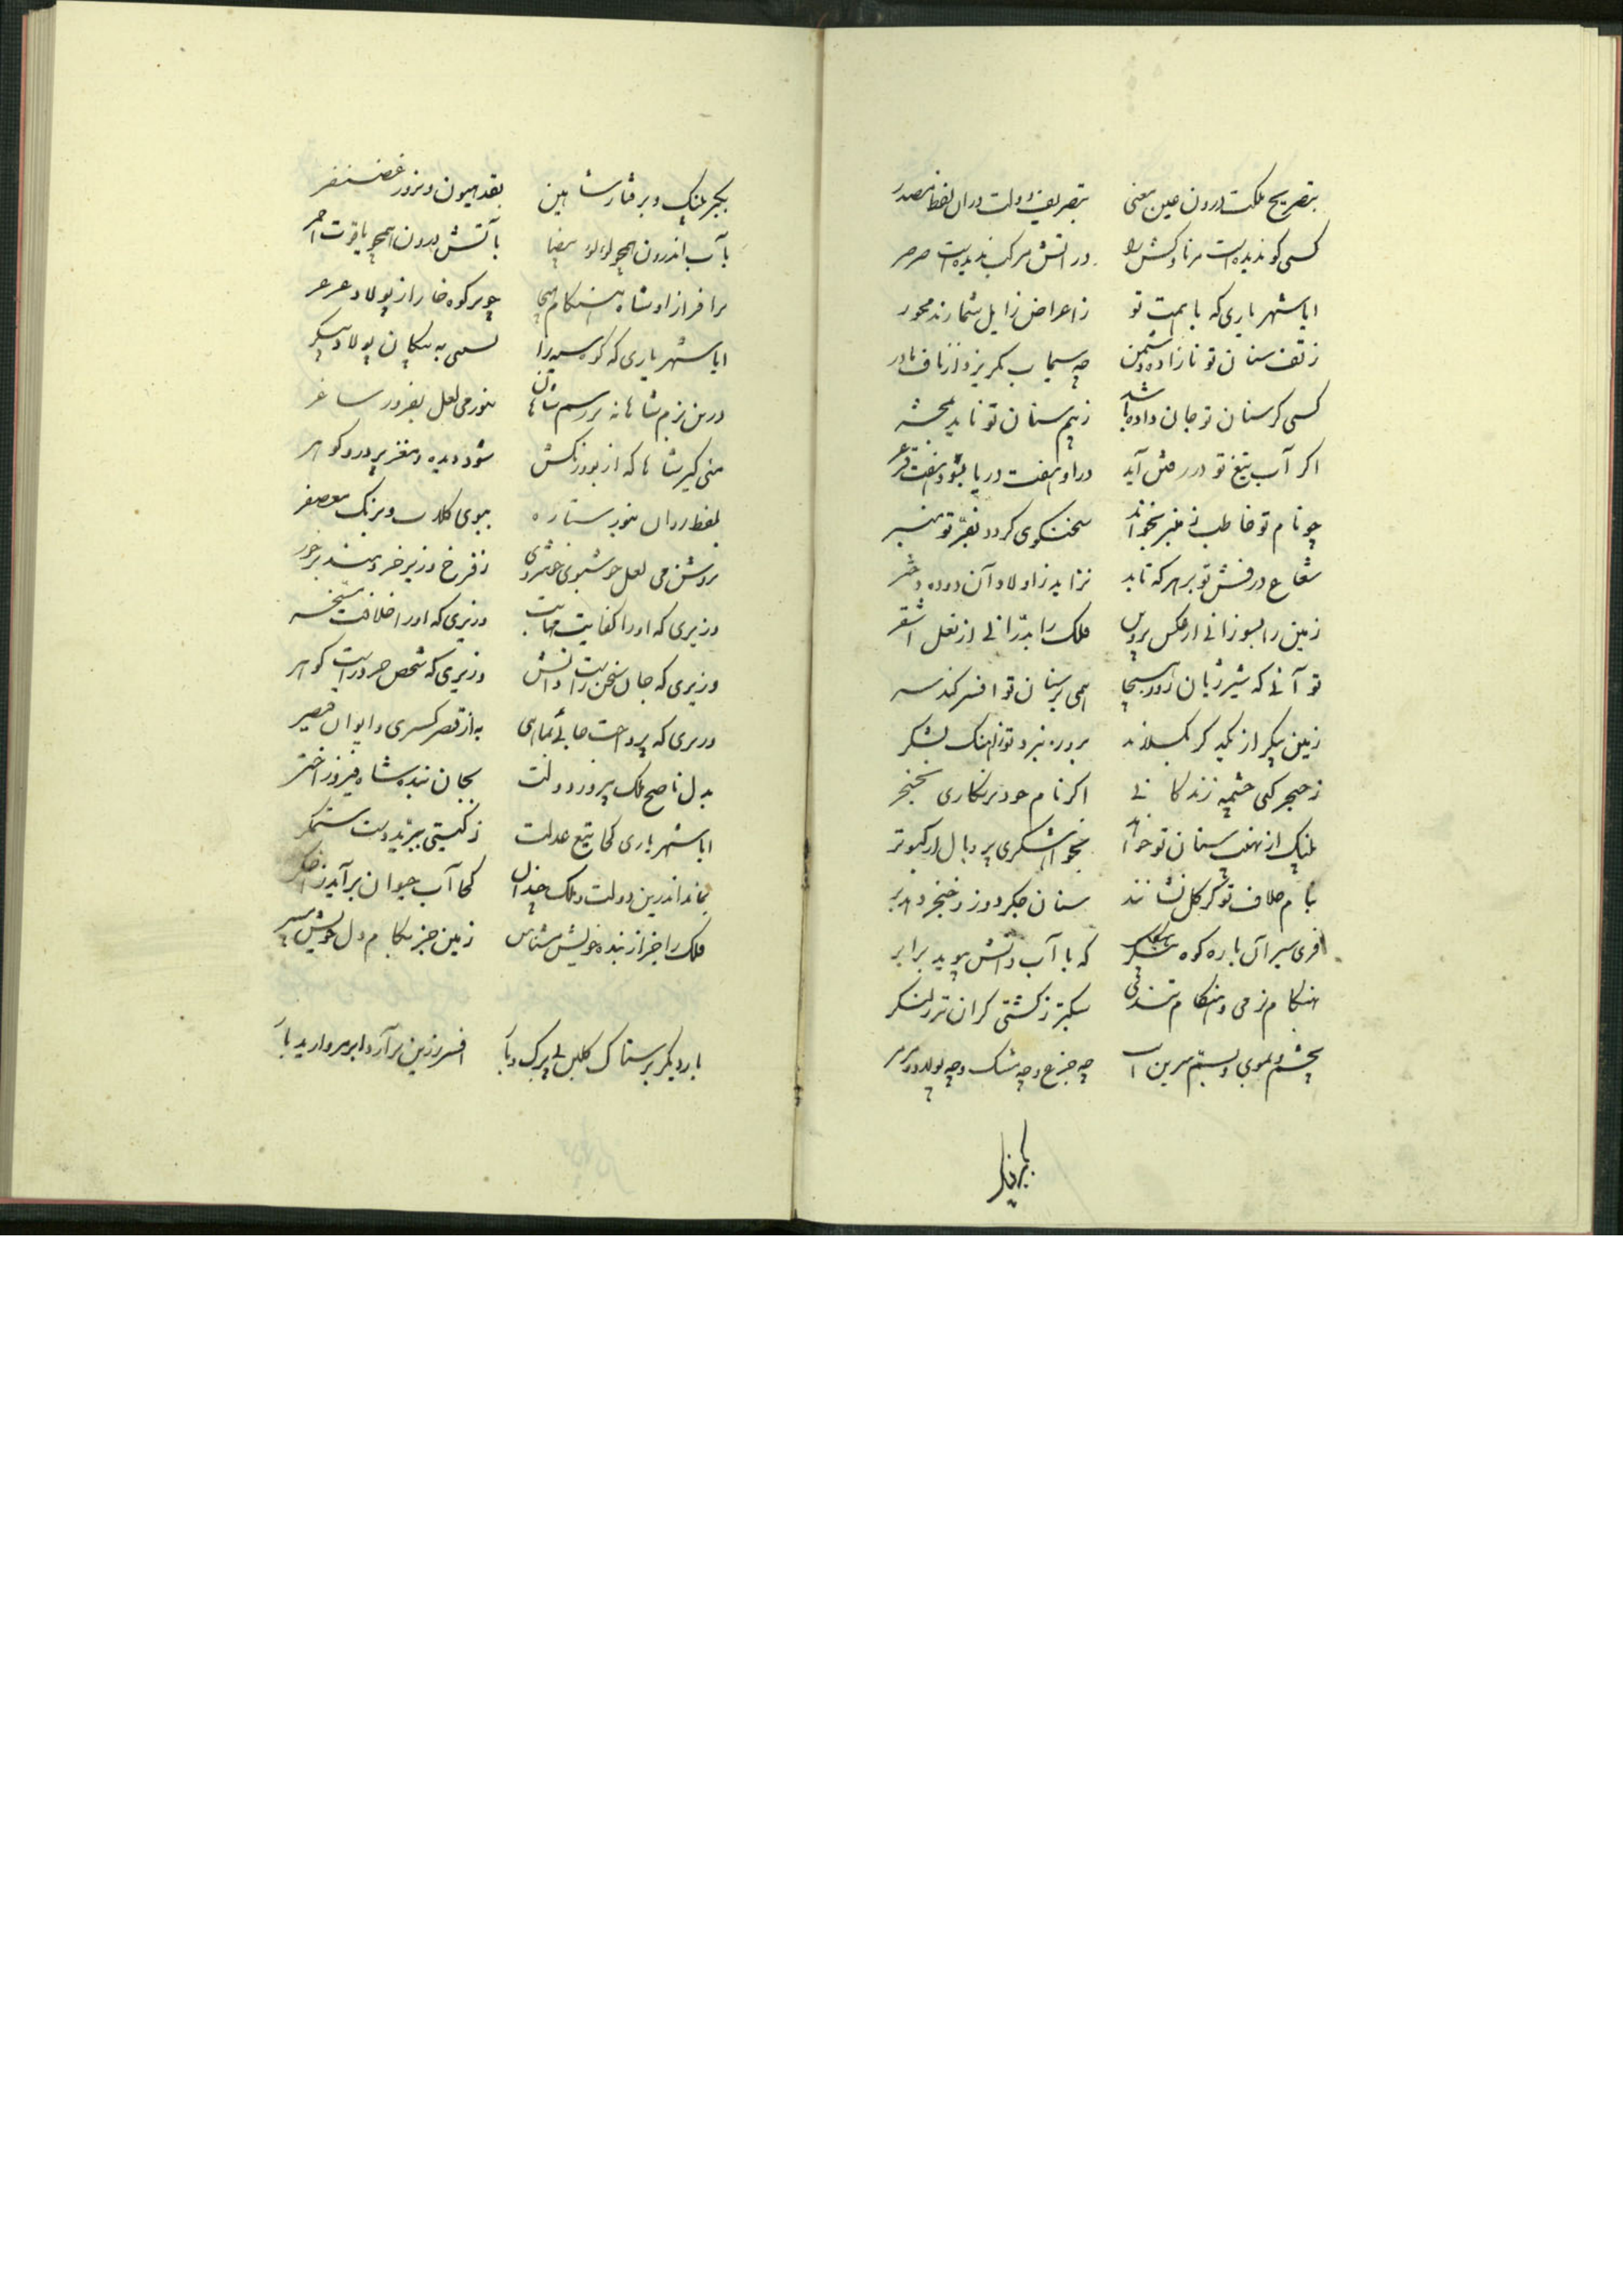 بتصریح ملکت درون عین معنی بتصریف دولت در آن لفظ مصدر
کسی کو ندیده است مر ناوکش را در آتش مرکب ندیده است صرصر
ایا شهریاری که با همت تو ز اعراض زایل شمارند محور
ز تف سنان تو نازاده دشمن چه سیماب بگریزد از ناف مادر
کسی کز سنان تو جان داده باشد ز بیم سنان تو ناید بمحشر
اگر آب تیغ تو در رفتن آید در او هفت دریا شود هفت فرغر
چو نام تو خاطب ز منبر بخواند سخنگوی کردد بفرّ تو منبر
شعاع درفش تو بر هر که تابد نزاید ز اولاد آن دوده دختر
زمین را بسوزانی از عکس فلک را بدرّانی از نعل اشقر
تو آنی که شیر ژیان روز هیجا همی بر سنان تو افسر کند سر
زمین پیکر از یکدیکر بگسلاند
چشمه زندکانی اگر نام خود بر نگاری بخنجر
پلنگ از نهیب سنان تو خواهد بخواهشگری پر و بال از کبوتر
بنام خلاف تو گر گل نشانند سنان جگر دوز و خنجر دهد بر
فری سیر آن باره کوه پیکر که با آب و آتش بپوید برابر
بهنکام نرمی و هنکام تندی سبکتر ز کشتی کران تر ز لنگر
بچشم و بموی و بسم و سرین است چه جزع و چه مشک و چه پولاد و مرمر
بار دیگر
بکبر پلنگ و برفتار شاهین بقد هیون و بزور غضنفر
بآب اندرون همچو لولو بیضا بآتش درون همچو یاقوت احمر
سر افراز او شاه هنگام هیجا چو بر کوه خارا ز پولاد عرعر
ایا شهریاری که کوه سیه را بسمی به پیکان پولاد پیکر
درین بزم شاهانه بر رسم شاهان بنور می لعل بفروز ساغر
منی گیر شاها که از بوی و رنگش شود دیده و مغز پر در و گوهر
بلفظ روان بنور ستاره ببوی گلاب و برنگ معصفر
بروشن می لعل خوشبوی خوشخور ز فرخ وزیر خردمند بر خور
وزیری که او را کفایت مهیاست وزیری که او را خلافت مسخر
وزیری که جان سخن راست دانش وزیری که شخص خرد راست گوهر
وزیری که پرداخت جائی نماهی به از قصر کسری و ایوان قیصر
بدل ناصح ملک پیروز دولت بجان بنده شاه فیروز اختر
ایا شهریاری کجا تیغ عدلت ز گیتی ببرید دست ستمگر
بماند اندرین دولت و ملک چندان کجا آب حیوان برآید ز اخگر
فلک را جز از بنده خویش مشناس زمین جز بکام دل خویش مسپر
بار دیگر بر ستاک گلبن بی برگ و بار افسر زرین برآرد ابر مروارید بار